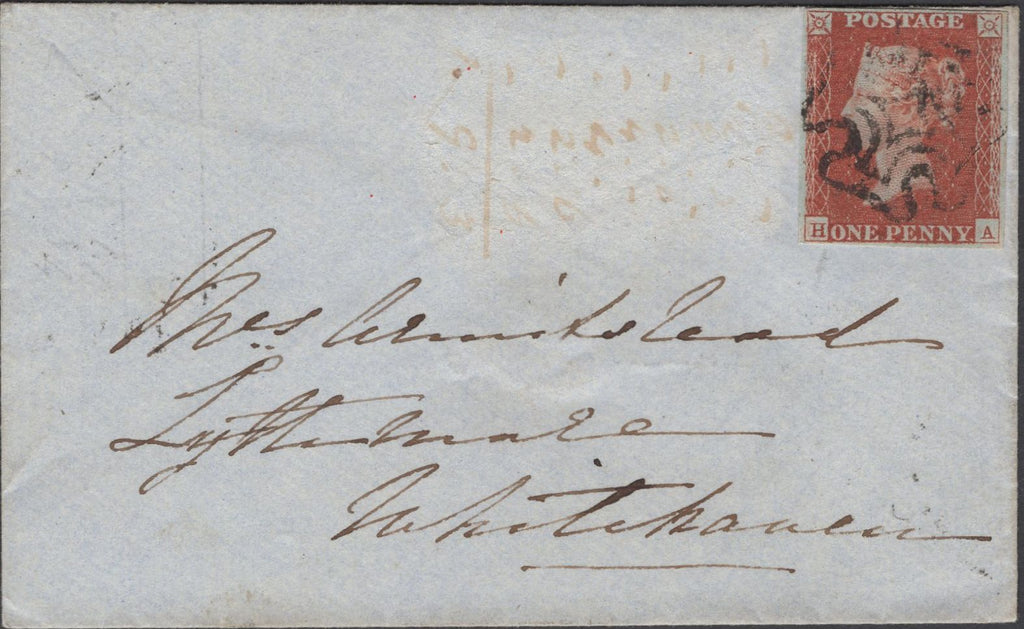 POSTAGE
H ONE PENNY A
Mrs Armitstead
Whitehaven